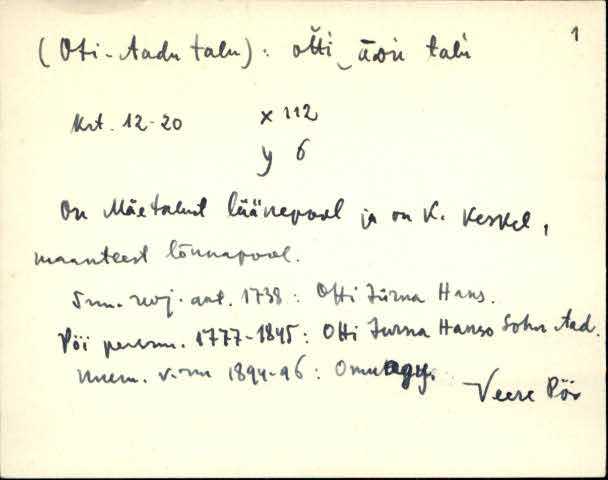 1
(Oti-Aadu talu): otti talu
Krt. 12-20 x 112
y 6
On Mäetalust läänepool ja on K. keskel,
maanteest lõunapool.
1738: Otti Jürna Hans.
Pöi 1777-1845: Otti Jurna Hanso Sohn Aad.
1894-96:
Veere Pöi